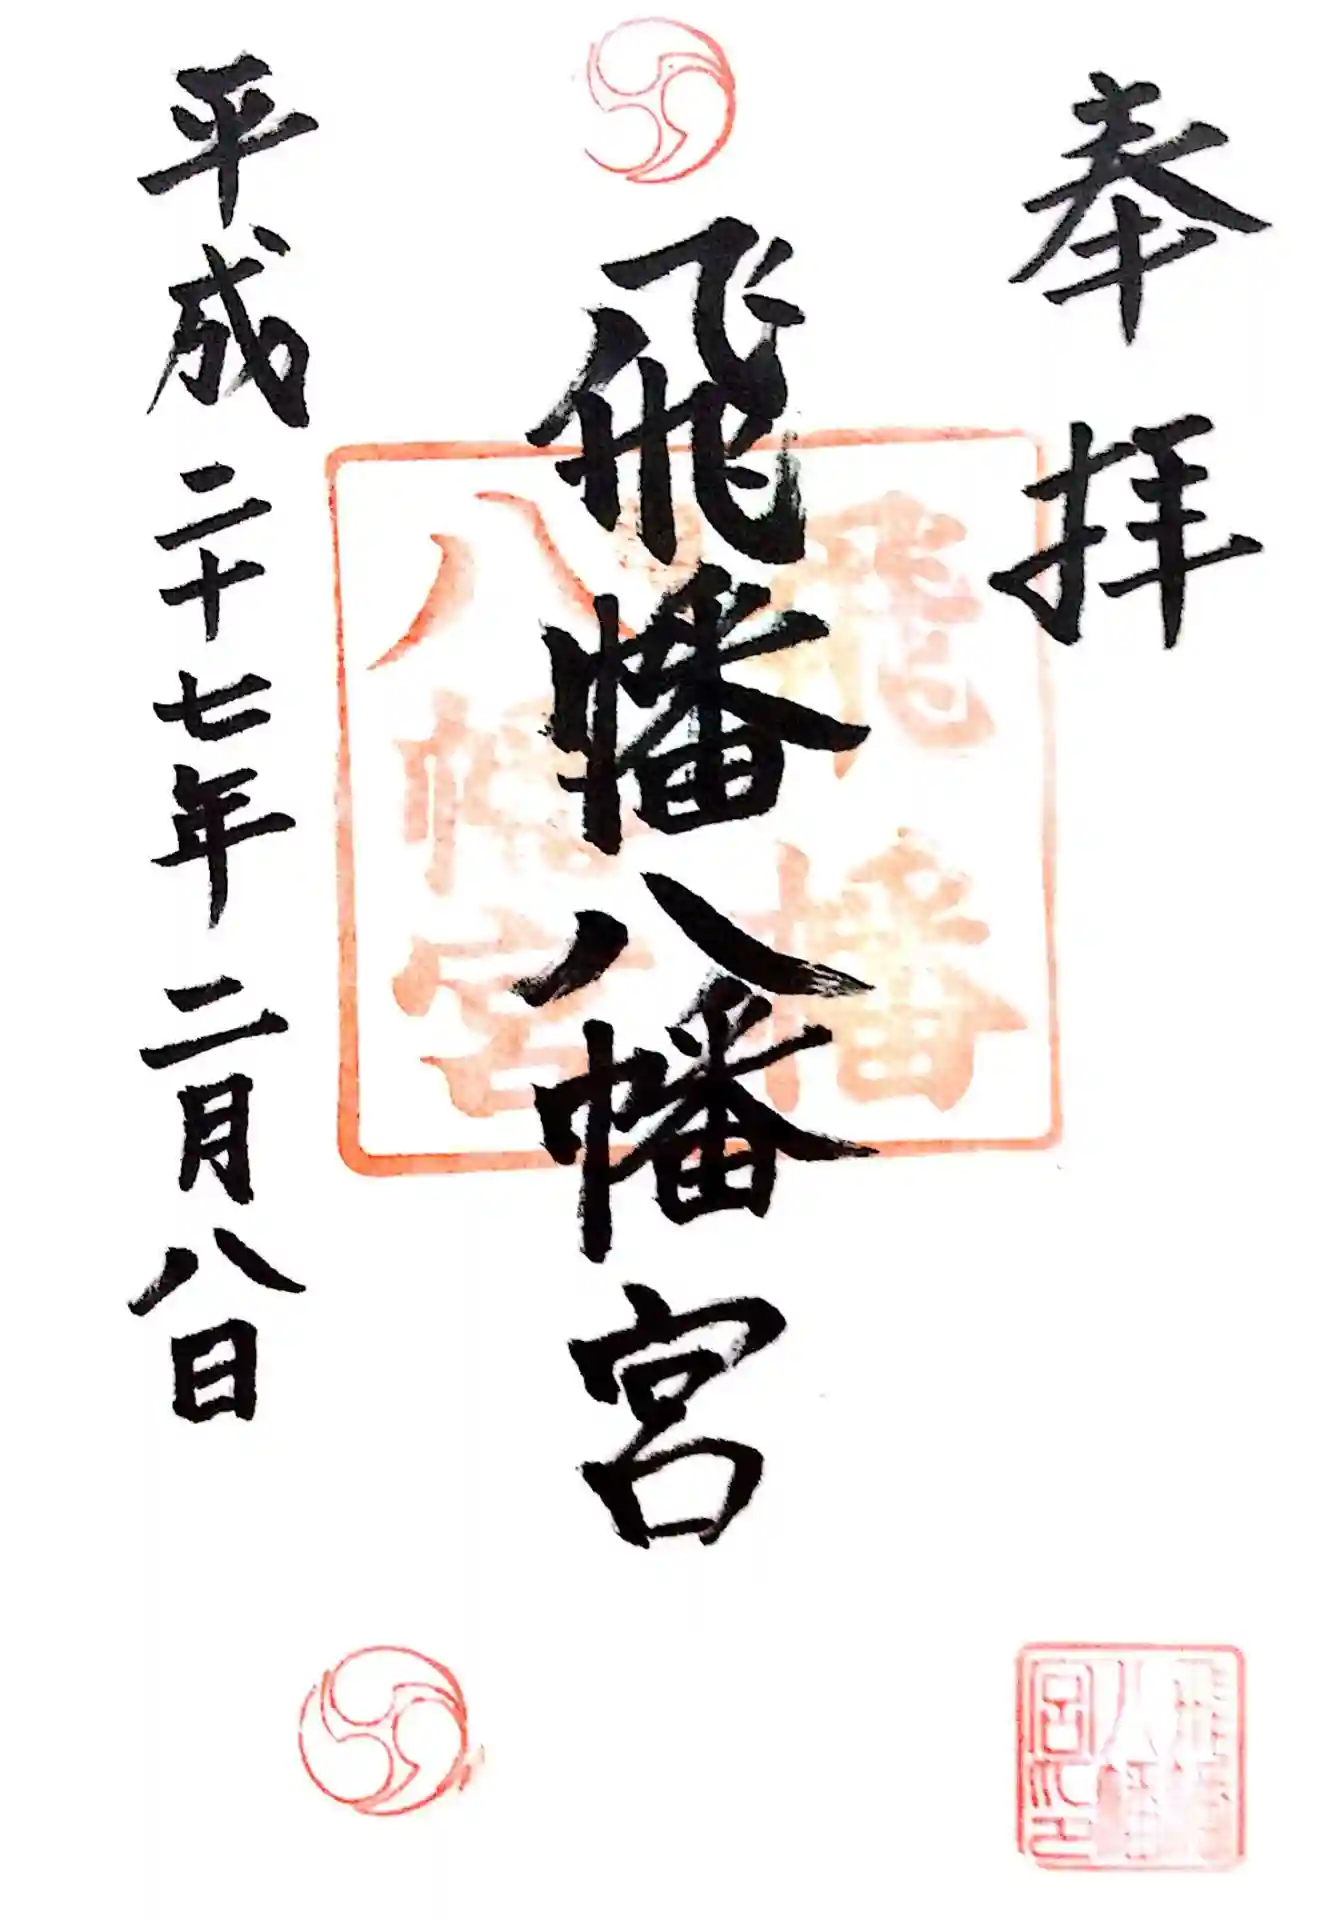 奉拝
飛幡八幡宮
平成二十七年二月八日
飛幡
八幡宮